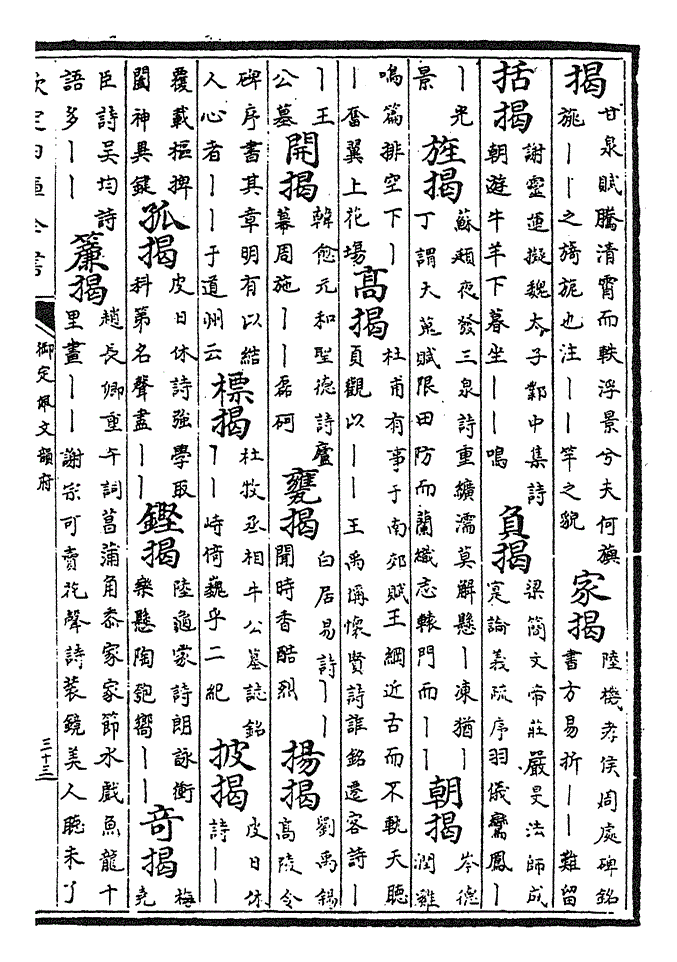 揭 甘泉賦騰清霄而軼浮景兮夫何旟旐丨丨之旖旎也注丨丨竿之貌 家揭 陸機孝侯周處碑銘書方易折丨丨難留
括揭 謝靈運擬魏太子鄴中集詩朝遊牛羊下暮坐丨丨鳴 負揭 梁簡文帝莊嚴旻法師成寔論義疏序羽儀鸞鳳丨
丨光景 旌揭 蘇頲夜發三泉詩重纊濡莫解懸丨凍猶丨丁謂大蒐賦限田防而蘭艧忘轅門而丨丨 朝揭 岑德潤雞
鳴篇排空下丨丨奮翼上花場 高揭 杜甫有事于南郊賦王綱近古而不軌天聽貞觀以丨丨王禹偁懷賢詩誰銘遷客詩丨
丨王公墓 開揭 韓愈元和聖德詩廬幕周施丨丨磊砢 甕揭 白居易詩丨丨聞時香酷烈 揚揭 劉禹錫高陵令
碑序書其章明有以結人心者丨丨于道州云 標揭 杜牧丞相牛公墓誌銘丨丨峙倚巍乎二紀 披揭 皮日休詩丨丨
覆載樞捭闔神異鍵 孤揭 皮日休詩強學取科第名聲盡丨丨 鏗揭 陸龜蒙詩朗詠衝樂懸陶匏響丨丨 奇揭 梅堯
臣詩吳均詩語多丨丨 簾揭 趙長卿重午詞菖蒲角黍家家節水戲魚龍十里畫丨丨謝宗可賣花聲詩裝鏡美人聽未了
欽定四庫全書 御定佩文韻府 三十三